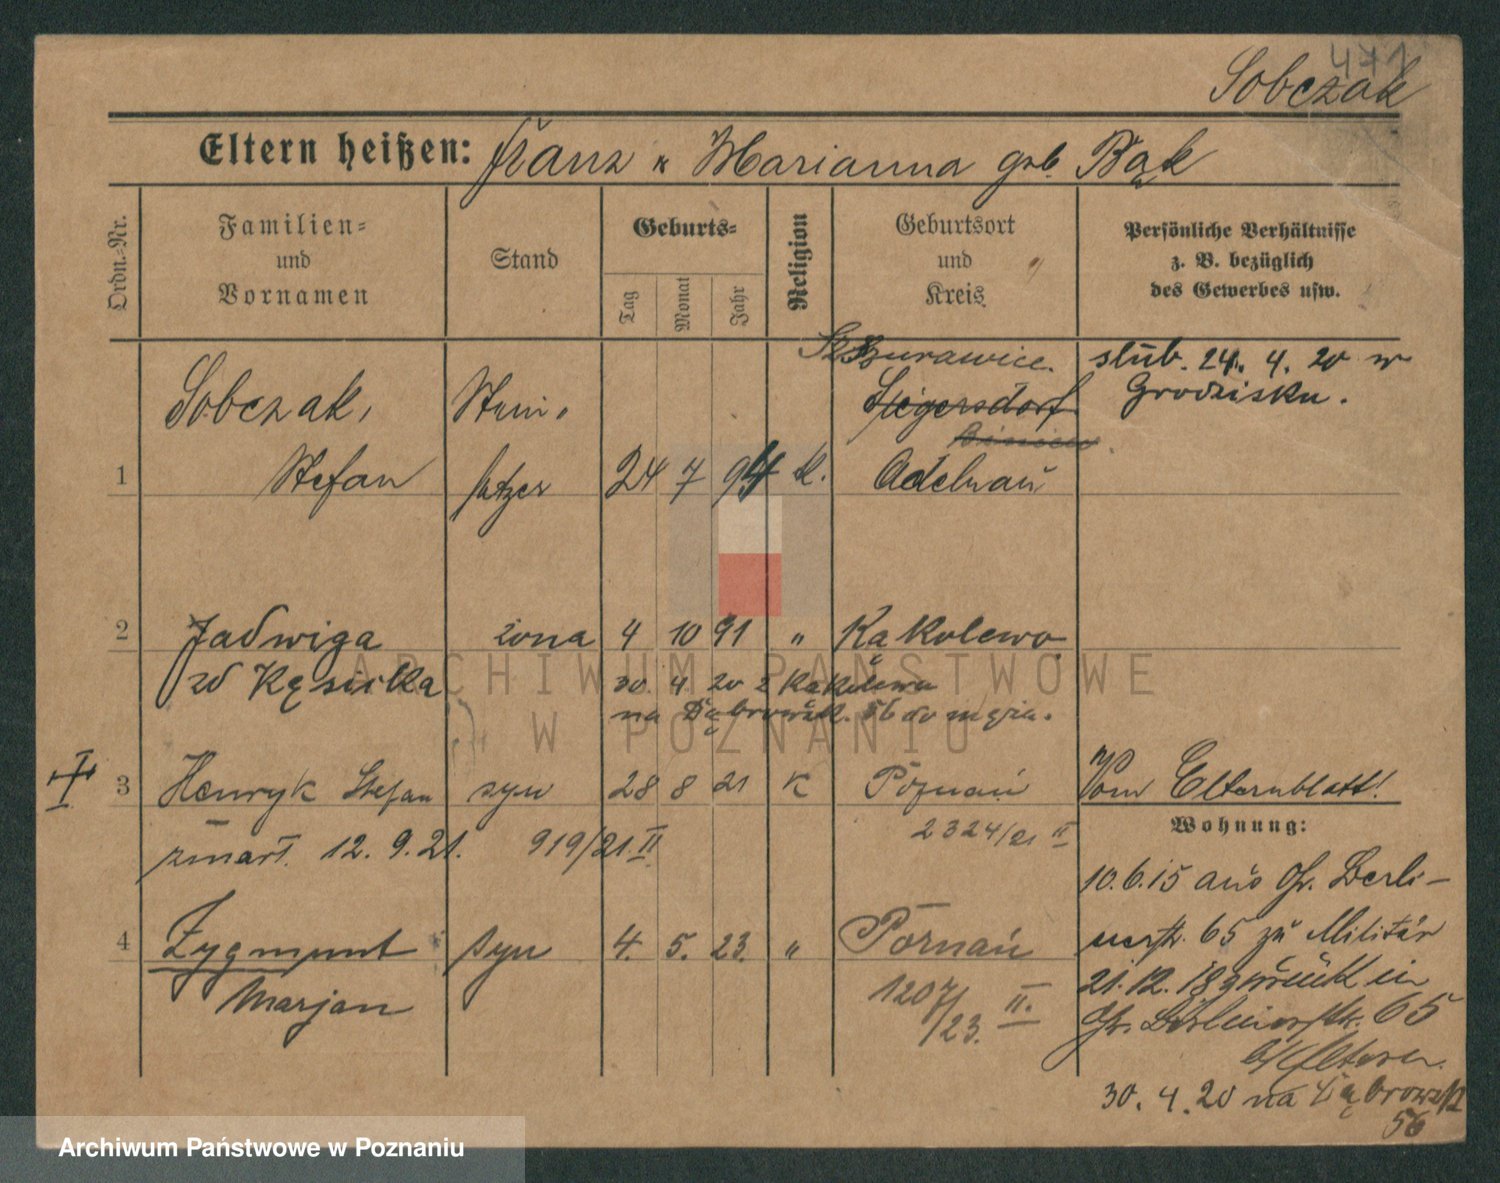 471
Sobczak
Eltern heißen: Franz u Marianna geb. Bąk
Ordn.-Nr.
Familien-
und
Vornamen
Stand
Geburts-
Tag
Monat
Jahr
Religion
Geburtsort
und
Kreis
Persönliche Verhältnisse
z. B. bezüglich
des Gewerbes usw.
Szczurawice.
ślub. 24. 4. 20 w
Sobczak,
Stein-
Siegersdorf
Grodzisku.
1
Stefan
setzer
24 7 94 k.
Adelnau
2
Jadwiga
żona
4 10 91 "
Kąkolewo
zd Kęsicka
30. 4. 20 z Kąkolewa
na Dąbrowsk. 56 do męża.
3
Henryk Stefan
syn
28 8 21 K
Poznań
Vom Elternblatt!
zmarł. 12. 9. 21. 919/21 II
2324/21 II
Wohnung:
10.6.15 aus Gr. Berli-
4
Zygmunt
syn
4. 5. 23. "
Poznań
nerstr. 65 zu Militär
Marjan
1207/23. II.
21.12.18 zurück in
Gr. Berlinerstr. 65
b/Eltern.
30. 4. 20 na Dąbrowsk
56
ARCHIWUM PAŃSTWOWE
W POZNANIU
Archiwum Państwowe w Poznaniu